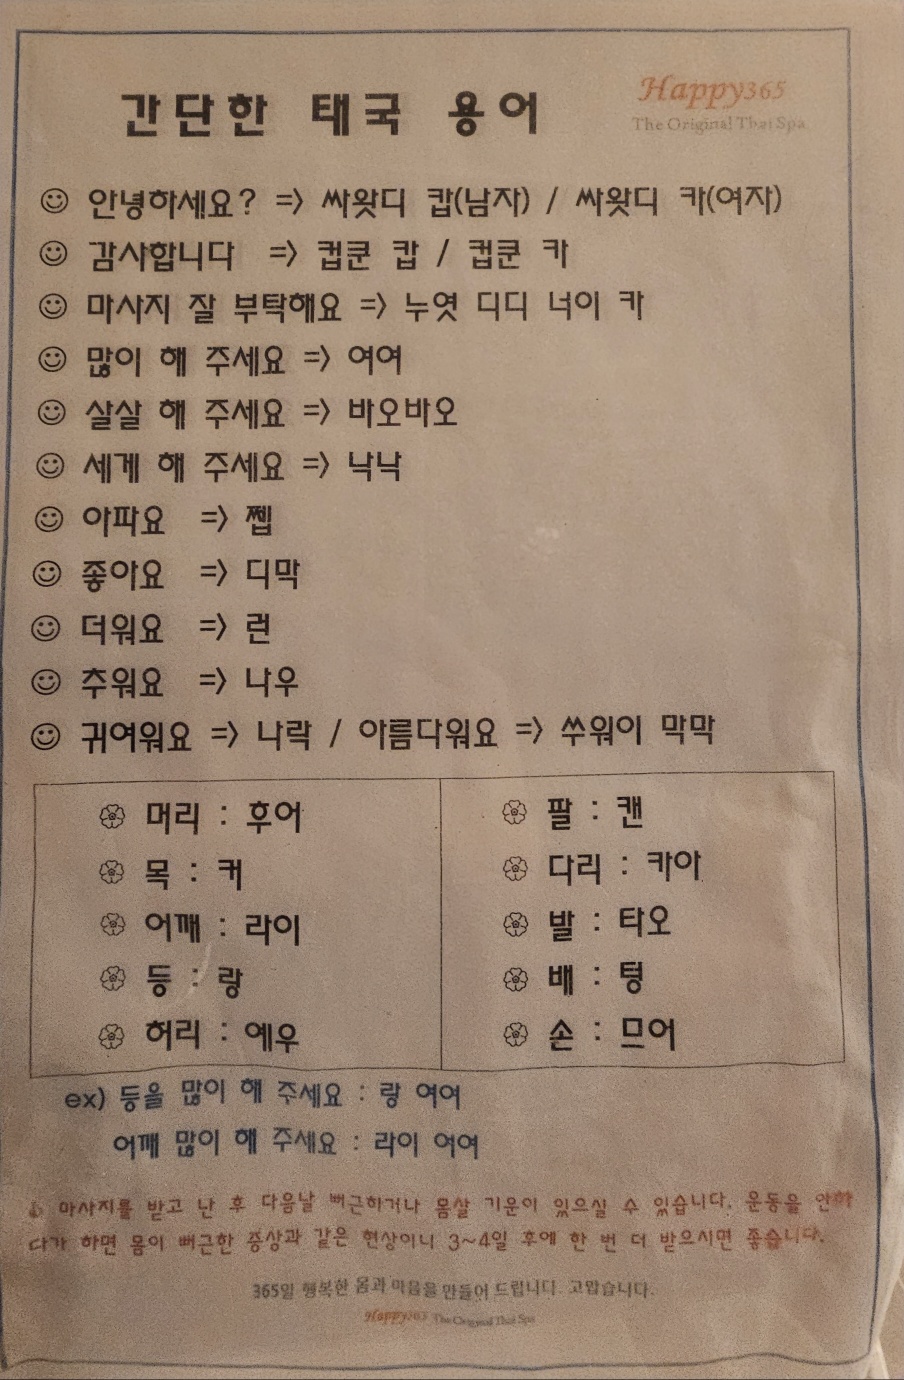 간단한 태국 용어
Happy365
The Original Thai Spa
☺ 안녕하세요? => 싸왓디 캅(남자) / 싸왓디 카(여자)
☺ 감사합니다 => 컵쿤 캅 / 컵쿤 카
☺ 마사지 잘 부탁해요 => 누엿 디디 너이 카
☺ 많이 해 주세요 => 여여
☺ 살살 해 주세요 => 바오바오
☺ 세게 해 주세요 => 낙낙
☺ 아파요 => 쩹
☺ 좋아요 => 디막
☺ 더워요 => 런
☺ 추워요 => 나우
☺ 귀여워요 => 나락 / 아름다워요 => 쑤워이 막막
머리 : 후어
목 : 커
어깨 : 라이
등 : 랑
허리 : 에우
팔 : 캔
다리 : 카아
발 : 타오
배 : 텅
손 : 므어
ex) 등을 많이 해 주세요 : 랑 여여
어깨 많이 해 주세요 : 라이 여여
마사지를 받고 난 후 다음날 뻐근하거나 몸살 기운이 있으실 수 있습니다. 운동을 안하
다가 하면 몸이 뻐근한 증상과 같은 현상이니 3~4일 후에 한 번 더 받으시면 좋습니다.
365일 행복한 몸과 마음을 만들어 드립니다. 고맙습니다.
Happy365 The Original Thai Spa